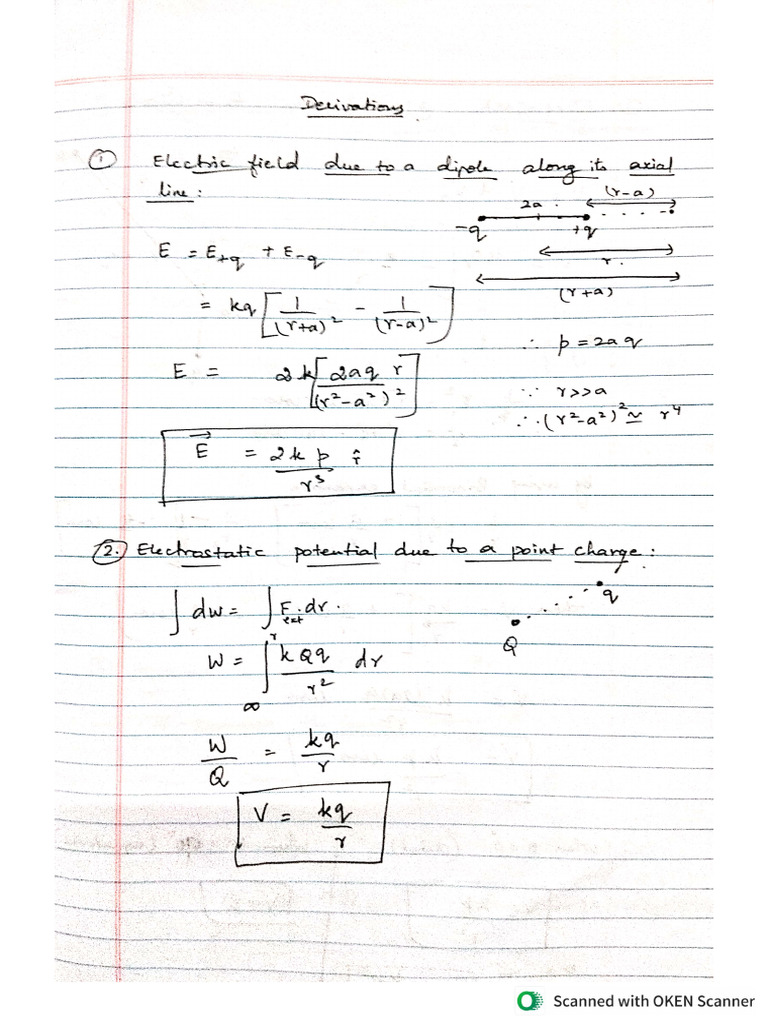 Derivations
① Electric field due to a dipole along its axial
line:
(r-a)
2a
-q +q
r
(r+a)
E = E+q + E-q
= kq [ 1/(r+a)² - 1/(r-a)² ]
∴ p = 2aq
E = 2k [ 2aq r / (r²-a²)² ]
∵ r>>a
∴ (r²-a²)² ≃ r⁴
E⃗ = 2kp/r³ r̂
②. Electrostatic potential due to a point charge:
∫dw = ∫F_ext.dr.
q
Q
W = ∫_∞^r kQq/r² dr
W/Q = kq/r
V = kq/r
Scanned with OKEN Scanner